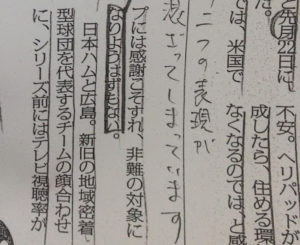 不安。ヘリパッドが
成したら、住める環
なくなるのでは、と感
と先月22日に
た。
では、米国で
二つの表現が
混ざってしまっています
プには感謝こそすれ、非難の対象に
なりようはずもない。
日本ハムと広島。新旧の地域密着
型球団を代表するチームの顔合わせ
に、シリーズ前にはテレビ視聴率が